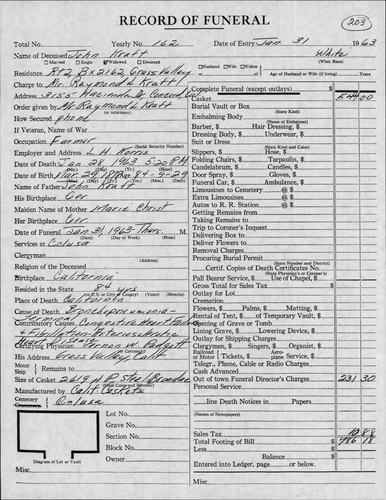 RECORD OF FUNERAL
203
Total No. Yearly No. 162 Date of Entry Jan 31 1963
Name of Deceased John Kratt White
Married Single Widowed Divorced Husband Wife Widow (What Race)
Residence Rt 2 Bx 2162, Grass Valley or Age of Husband or Wife (if living) Years
Charge to Mr. Raymond L. Kratt
Address 3155 Concord, Cal
Order given by Mr Raymond L. Kratt
(or informant)
How Secured phone
If Veteran, Name of War
Occupation Farmer
(Social Security Number)
Employer and Address L. H. Norris
Date of Death Jan 28, 1963 5:20 PM
Date of Birth Mar 29, 1878 84-9-29
Name of Father John Kratt
His Birthplace Ger
Maiden Name of Mother Marie Christ
Her Birthplace Ger
Date of Funeral Jan 31, 1963 Thurs. M.
(Date) (Day of Week) (Hour)
Services at Colusa
Clergyman
Religion of the Deceased
Birthplace California
Resided in the State 84 yrs
Place of Death California
Cause of Death Bronchopneumonia-
Terminal
Contributory Causes Congestive Heart Failure
Heart Disease
Certifying Physician Vernon W. Padgett
His Address Grass Valley, Calif
Motor
Ship Remains to
Size of Casket 2619
Manufactured by Calif Caskets
Cemetery
Colusa
Lot No.
Grave No.
Section No.
Block No.
Owner
Diagram of Lot or Vault
Misc.
Complete Funeral (except outlays) $
Casket 544 00
Burial Vault or Box
(State Kind)
Embalming Body
(State Kind)
Barber, $ Hair Dressing, $
Dressing Body, $ Underwear, $
Suit or Dress
(State Kind and Color)
Slippers, $ Hose, $
Folding Chairs, $ Tarpaulin, $
Candelabrum, $ Candles, $
Door Spray, $ Gloves, $
Funeral Car, $ Ambulance, $
Limousines to Cemetery @ $
Extra Limousines @ $
Autos to R. R. Station @ $
Getting Remains from
Taking Remains to
Trip to Coroner's Inquest
Delivering Box to
Deliver Flowers to
Removal Charges
Procuring Burial Permit
(State Number and District)
Certif. Copies of Death Certificates No.
Pall Bearer Service, $ Use of Chapel, $
Gross Total for Sales Tax $
Outlay for Lot
Cremation
Flowers, $ Palms, $ Matting, $
Rental of Tent, $ of Temporary Vault, $
Opening of Grave or Tomb
Lining Grave, $ Lowering Device, $
Outlay for Shipping Charges
Clergymen, $ Singers, $ Organist, $
Railroad or Motor Tickets, $ Aeroplane Service, $
Telegr., Phone, Cable or Radio Charges
Cash Advanced
Out of town Funeral Director's Charges 231 30
Personal Service
line Death Notices in Papers
(Names of Newspapers)
Sales Tax 10 88
Total Footing of Bill $ 786 18
Less
Balance $
Entered into Ledger, page or below.
Misc.